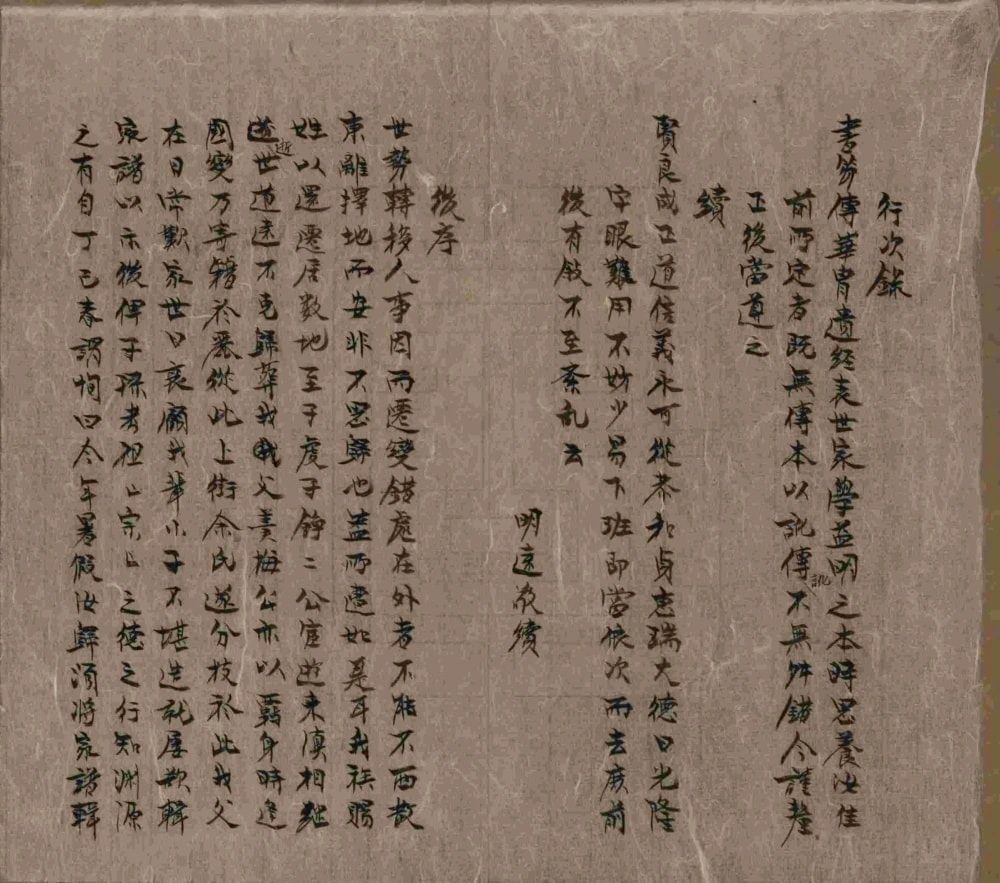 行次錄
書笏傳華胄遺經裹世家學益明之本時思養汝佳
前所定者既無傳本以訛傳訛不無舛錯今謹釐
正後當遵之
續
賢良成正道信義永可從恭和貞惠瑞大德日光隆
字眼難用不妨少易下班即當依次而去庶前
後有敘不至紊乱云
明遠敬續
後序
世勢轉移人事因而遷變錯處在外者不能不西散
東離擇地而安非不思歸也盖所遭如是耳我族賜
姓以還遷居数地至于虔子錚二公宦遊來滇相繼
逝世道遠不克歸葬我父賣梅公亦以羇身時進
國變乃寄籍於從此上街余氏遂分枝於此我父
在日常歎家世日衰顧我輩小子不堪造就屡欲輯
家譜以示後俾子孫考祖上宗上之德之行知渊源
之有自丁已春謂恂曰今年暑假汝歸須将家譜輯